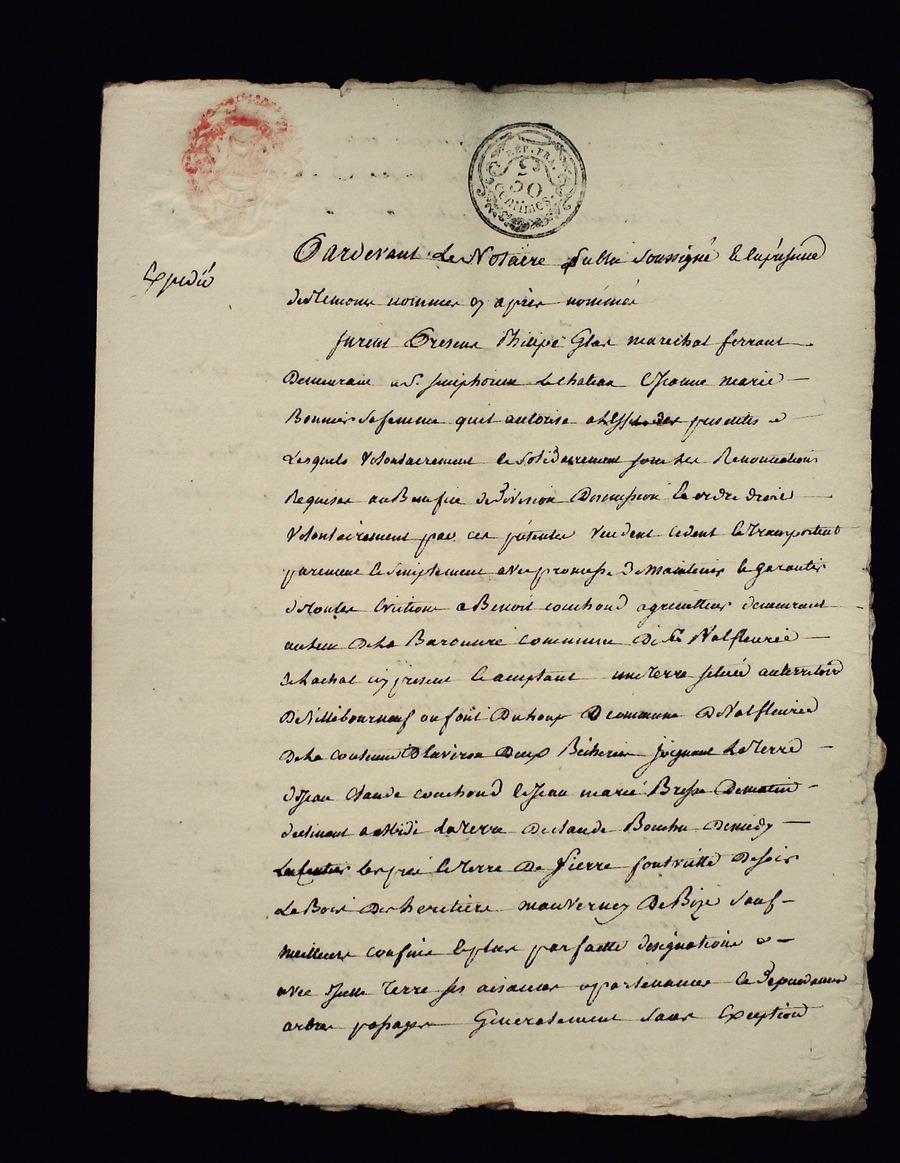 REP. FRA.
50
centimes.
Pardevant Le Notaire public soussigné &
Expedié
de temoins nommes cy après nommés
furent presens Philipe Gras marechal ferrant
Demeurant a St. simphorien le chateau & Jeanne marie
Bonnier sa femme quil autorise a leffet des presentes
Lesquels volontairement & solidairement sous les Renonciations
Requises au Benefice de Division Discussion & ordre droit
volontairement par ces presentes vendent cedent & transportent
purement & simplement avec promesse de maintenir & garantir
de toutes Evictions a Benoit couchoud agriculteur demeurant
au lieu De La commune De Valfleurie
De Lachat cy present & acceptant une terre située au territoire
De Villebourneuf ou font commune De Valfleurie
De La contenue Denviron Deux Bicherées joignant La Terre
de Jean Claude couchoud & Jean marie De matin
declinant a Midi La Terre De claude De midy
les pré & Terre De Pierre fontvieille De soir
Le Bois Des heritiers mauverney De Bize sauf
meilleurs confins & plus parfaitte designation
avec ditte Terre ses aisances appartenances & Dependances
arbres passages Generalement sans Exception